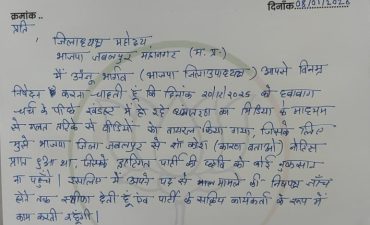 क्रमांक..
दिनांक 08/01/2026
प्रति
जिलाध्यक्ष महोदय
भाजपा जबलपुर महानगर (म.प्र.)
मैं अंजू भार्गव (भाजपा जिलाउपाध्यक्ष) आपसे विनम्र
निवेदन करना चाहती हूं कि दिनांक 20/12/2025 को हवाबाग
चर्च के पीछे खंडहर में हो रहे धर्मांतरण का मिडिया के माध्यम
से गलत तरीके से वीडियो को वायरल किया गया, जिसके लिए
मुझे भाजपा जिला जबलपुर से शो कॉज (कारण बताओ) नोटिस
प्राप्त हुआ था, जिसके पार्टी की छवि को कोई नुकसान
ना पहुंचे। इसलिए मैं अपने पद से मामले की निष्पक्ष जाँच
होने तक स्तीफा देती हूं एवं पार्टी के सक्रिय कार्यकर्ता के रूप में
काम करती रहूँगी।